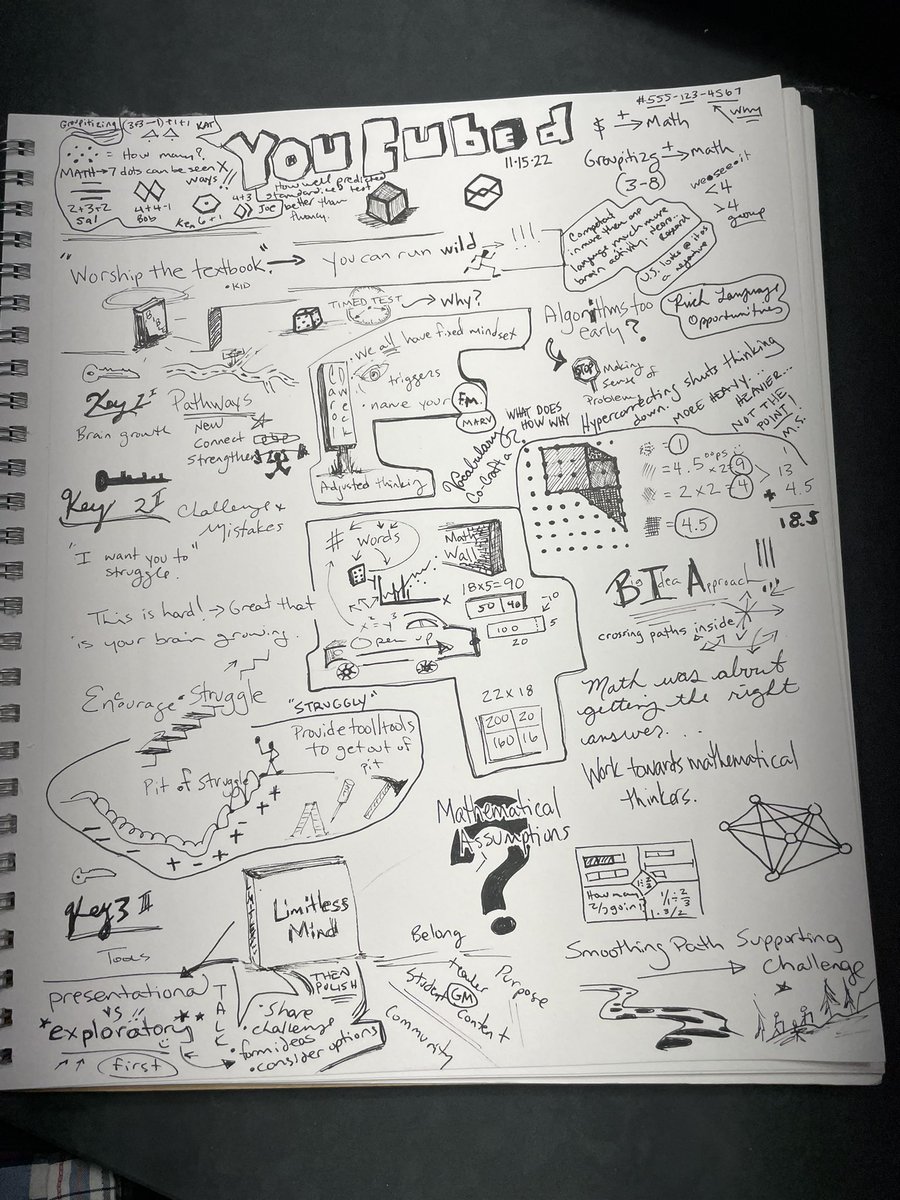 Groupitizing (3+3-1)+1+1 KAT
= How many?
MATH → 7 dots can be seen X
ways!!
2+3+2
Sal
4+4-1
Bob
Ken 6+1
4+3
Joe
How well predicted
standardized test
better than
fluency.
YouCubed
11-15-22
#555-123-4567
Why
$ ± → Math
Groupitizg ± → math
(3-8)
we see it
<4
>4
group
"Worship the textbook." → you can run wild → !!!
• KID
Competent
in more than one
language much more
brain activity.
Research
U.S. looks @ it as
a negative
Rich Language
Opportunities
TIMED TEST → Why?
Algorithms too
early?
STOP
Making
sense of
Problem
we all have fixed mindset
triggers
name your F.M.
MARY
Adjusted thinking
Key 1
Pathways
Brain growth
New
Connect
Strengthen
WHAT DOES
HOW WHY
Vocabulary
Co-Craft a
Hypercorrecting shuts thinking
down.
MORE HEAVY...
HEAVIER...
NOT THE
POINT!
M.S.
= 1
= 4.5 oops
x2=9
= 2x2=4
= 4.5
13
+ 4.5
18.5
Key 2
Challenge &
Mistakes
"I want you to"
struggle.
This is hard! → Great that
is your brain growing.
# words
Math
Wall
x² = y³
x
Open up
18x5=90
50 40
10
100
5
20
22x18
200 20
160 16
Big Idea Approach !!!
crossing paths inside
Math was about
getting the right
answer...
Work towards mathematical
thinkers.
Encourage Struggle
"STRUGGLY"
Pit of Struggle
Provide tool/tools
to get out of
pit
Mathematical
Assumptions
?
Key 3
Tools
LIMITLESS
Limitless
Mind
How many
2/3 go in 1
1÷2/3
1/1 ÷ 2/3
1·3/2
presentational
vs !!
exploratory
↑↑ first
TALK
THEN
POLISH
• Share
• challenge
• form ideas
• consider options
Belong
teacher
Student
GM
Content
Purpose
Community
Smoothing Path → Supporting
Challenge